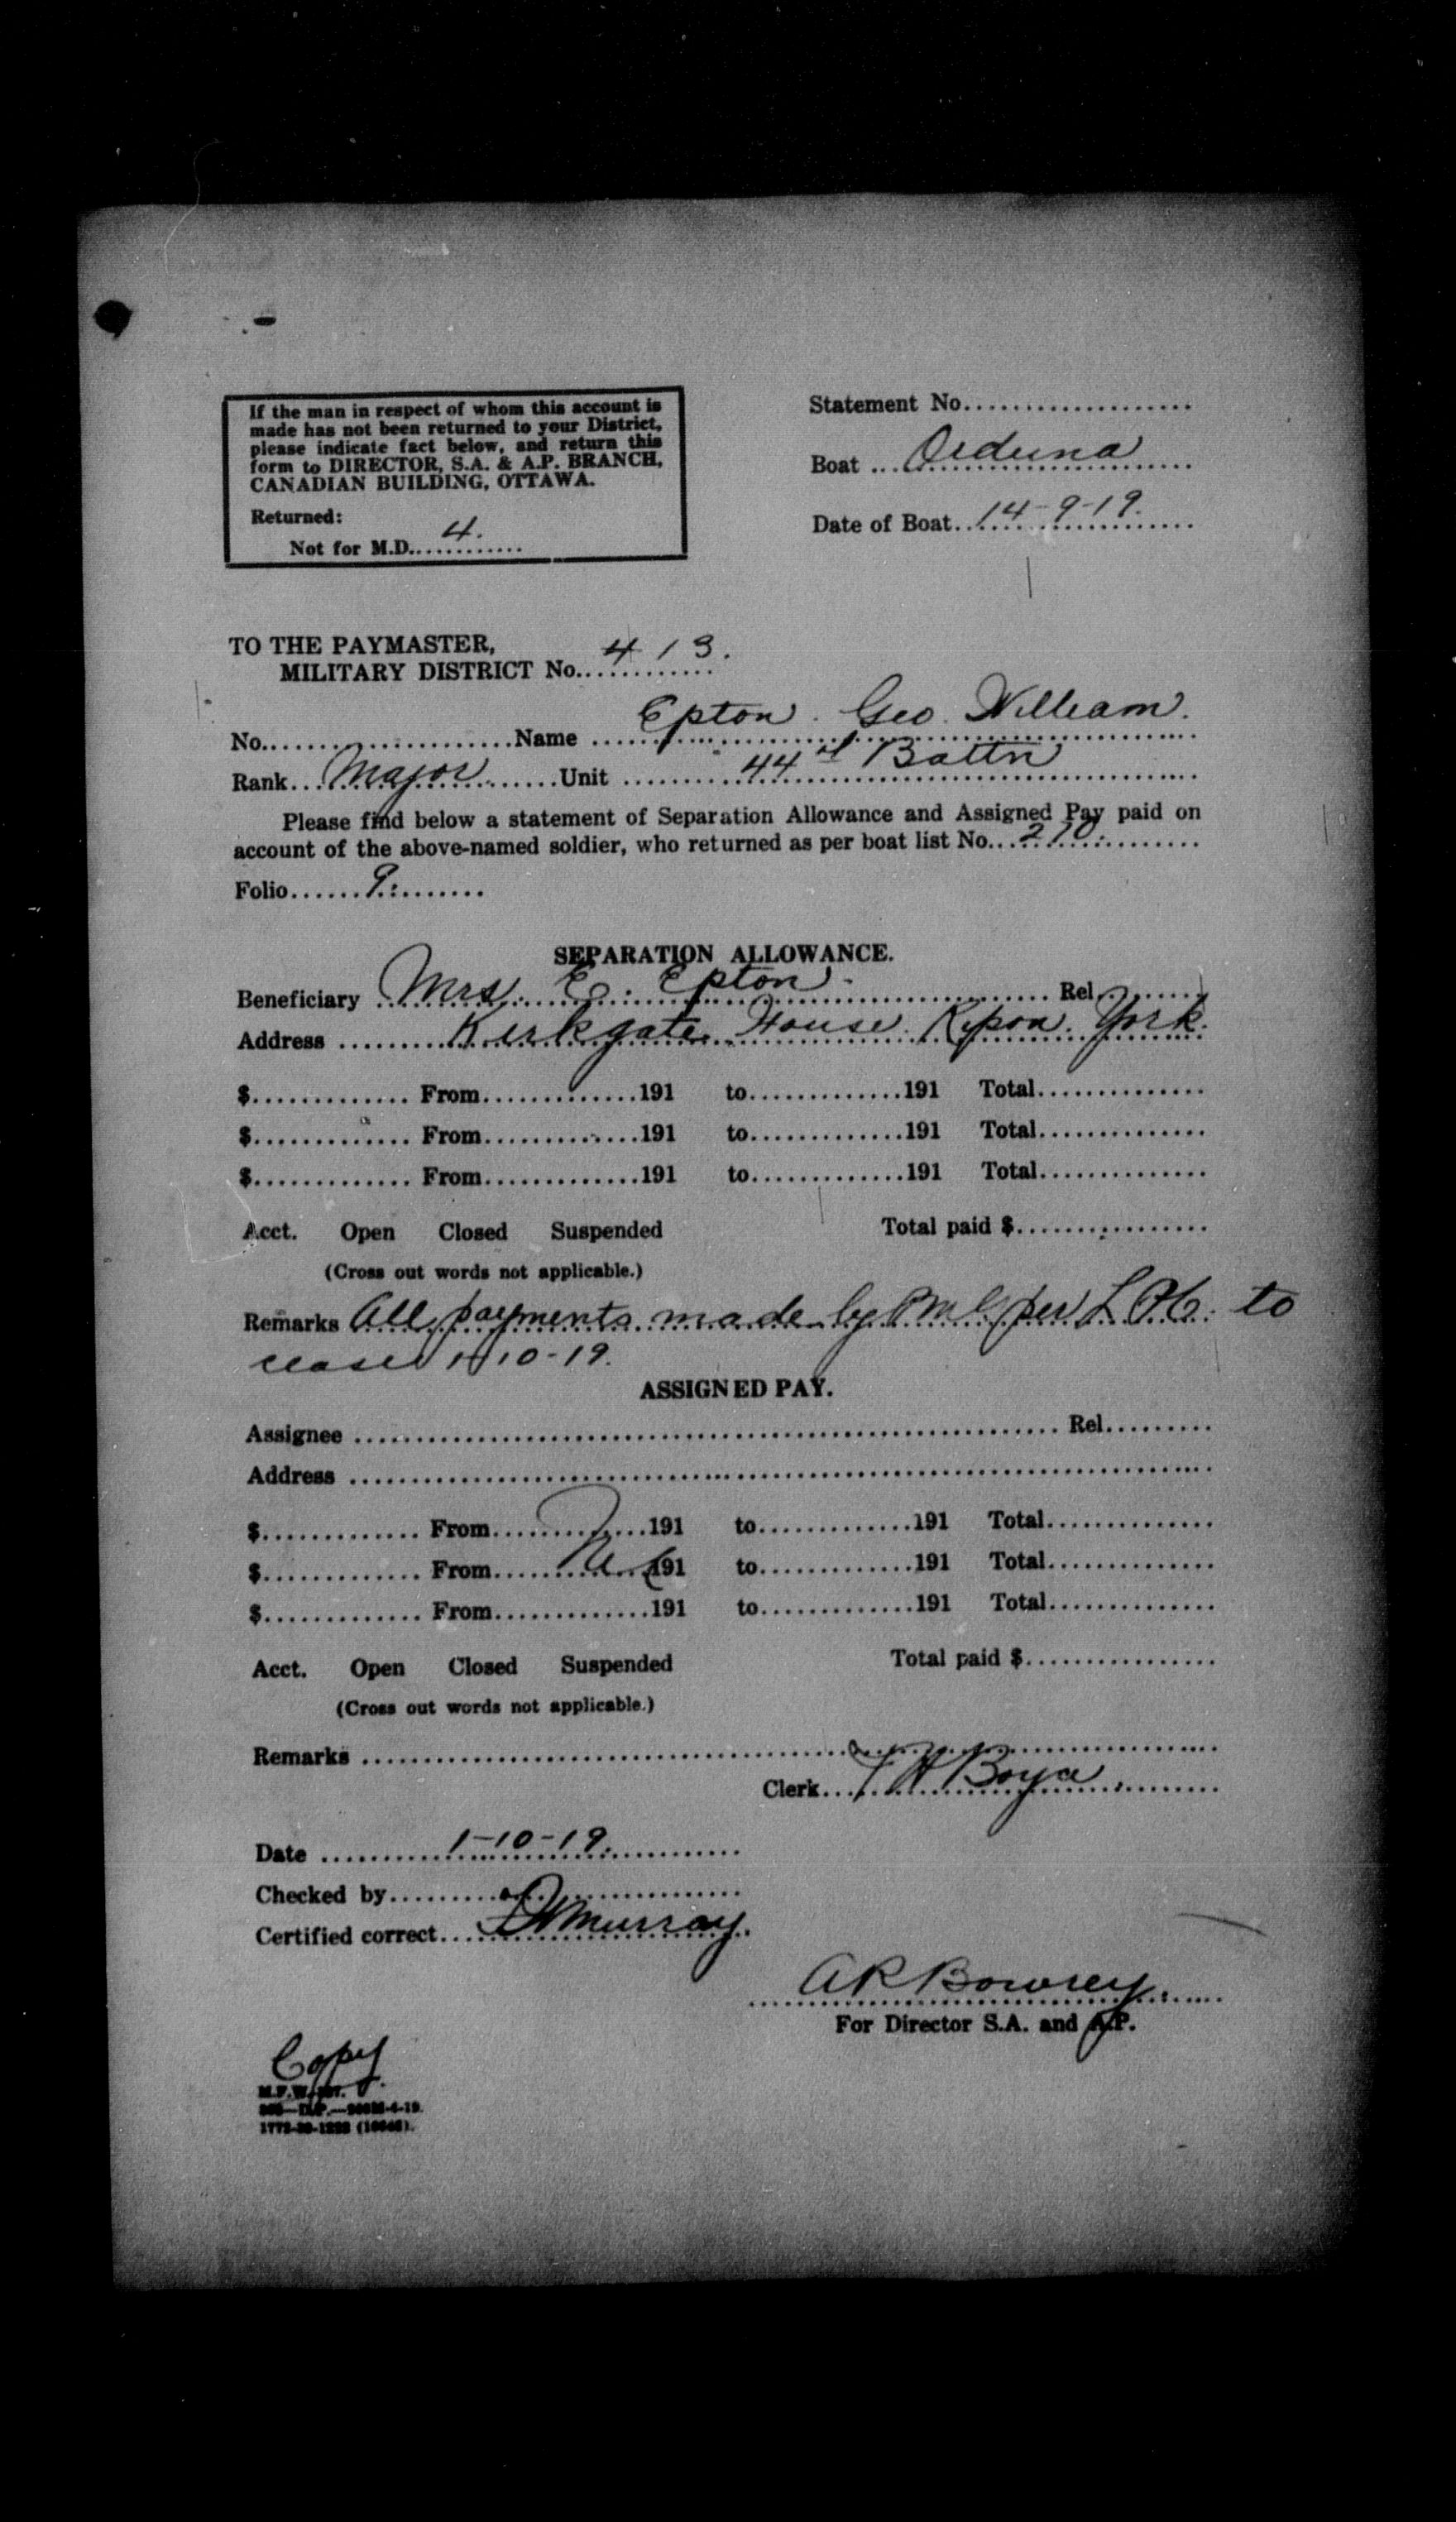 If the man in respect of whom this account is
made has not been returned to your District,
please indicate fact below, and return this
form to DIRECTOR, S.A. & A.P. BRANCH,
CANADIAN BUILDING, OTTAWA.
Returned:
Not for M.D. 4.
Statement No.
Boat Orduna
Date of Boat 14-9-19.
TO THE PAYMASTER,
MILITARY DISTRICT No. 413.
No. Name Epton. Geo. William.
Rank Major Unit 44th Battn
Please find below a statement of Separation Allowance and Assigned Pay paid on
account of the above-named soldier, who returned as per boat list No. 270.
Folio 9.
SEPARATION ALLOWANCE.
Beneficiary Mrs. E. Epton. Rel.
Address Kirkgate House. Ripon. York.
$ From 191 to 191 Total
$ From 191 to 191 Total
$ From 191 to 191 Total
Acct. Open Closed Suspended Total paid $
(Cross out words not applicable.)
Remarks All payments made by per to
cease 1-10-19.
ASSIGNED PAY.
Assignee Rel.
Address
$ From 191 to 191 Total
$ From 191 to 191 Total
$ From 191 to 191 Total
Acct. Open Closed Suspended Total paid $
(Cross out words not applicable.)
Remarks
Clerk
Date 1-10-19.
Checked by
Certified correct Murray.
A R Bowrey.
For Director S.A. and A.P.
Copy